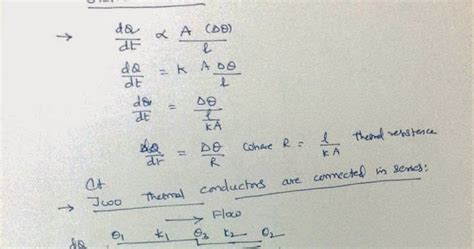 → dQ/dt ∝ A (Δθ)/l
dQ/dt = K A Δθ/l
dQ/dt = Δθ/(l/KA)
dQ/dt = Δθ/R where R = l/KA Thermal resistance
→ Two Thermal conductors are connected in series:
→ Flow
dQ θ1 K1 θ2 K2 θ2